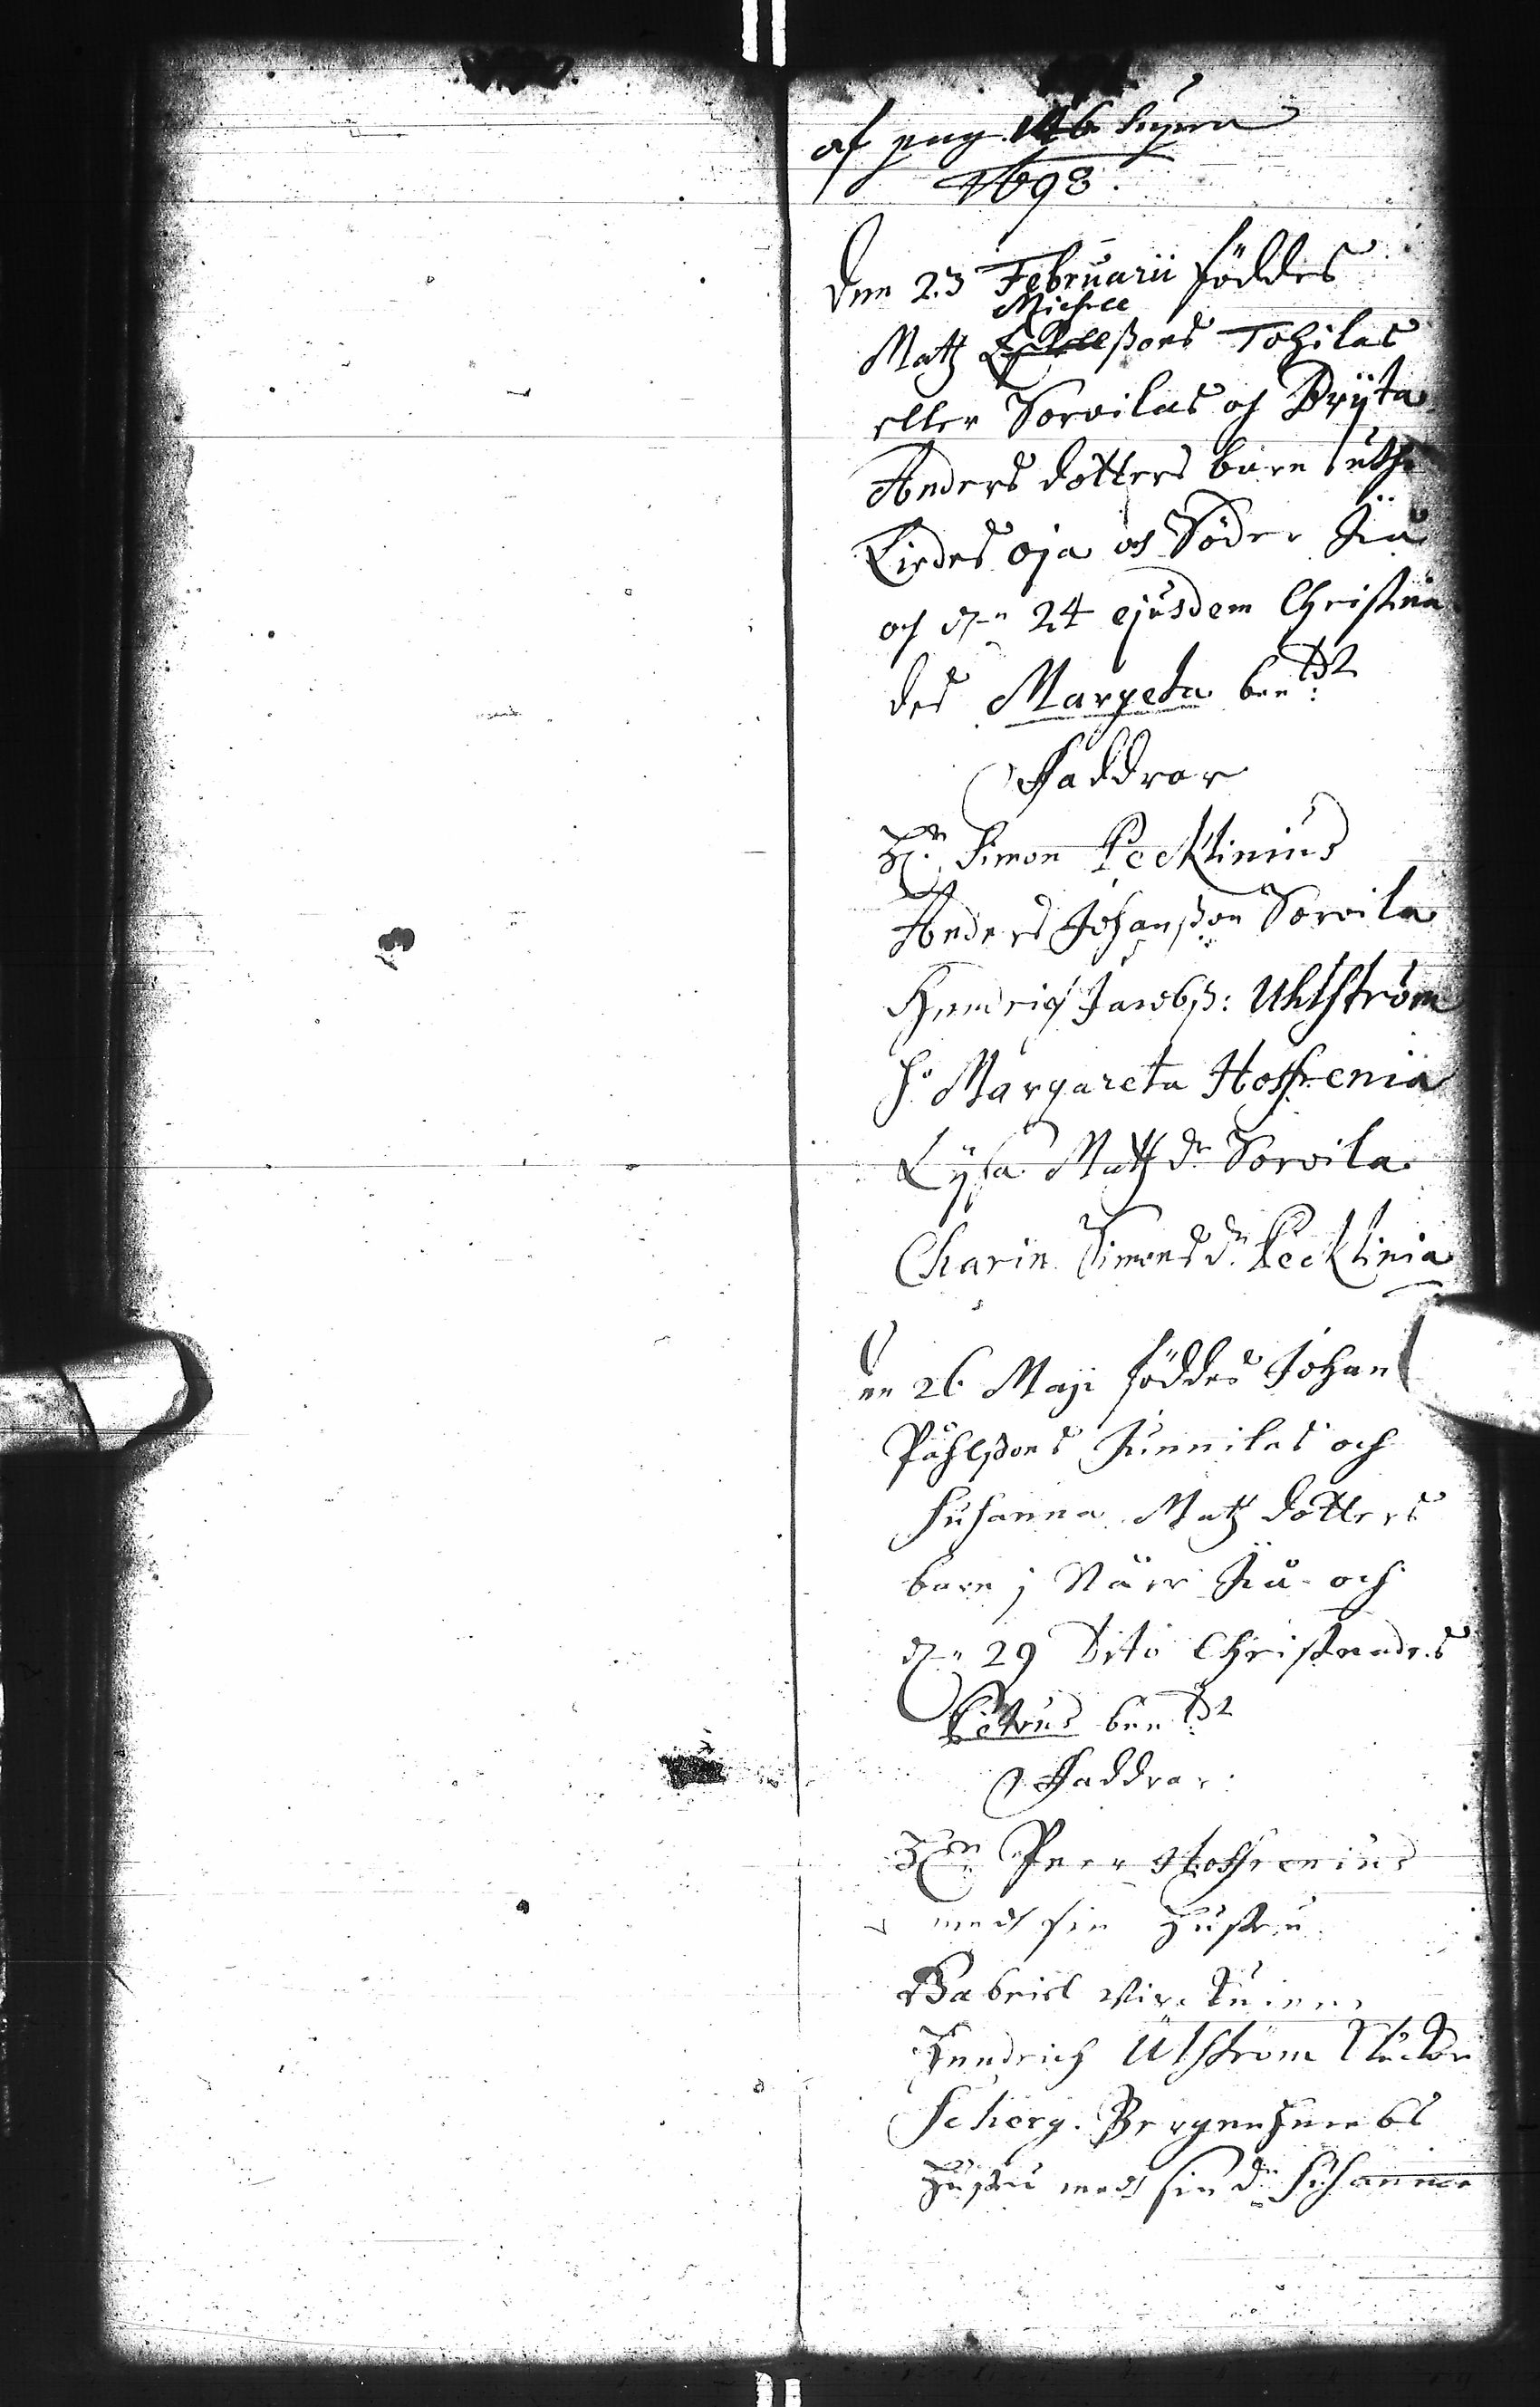 af pag. 146 supra
1698.
Den 23 Februarii föddes
Michell
Matz Eskellßons Tohilas
eller Sorvilas och Bryta
Anders dotters barn uthi
Lirdes oja och Söder Åå
och d.n 24 ejusdem Christna
des Margeta ben:d
Faddrar
H:r Simon Pecklinius
Anders Johanßon Sorvila
Hendrich Jacobß: Uhlström
h. Margareta Hoffrenia
Lysa Matz dr Sorvila
Charin Simons dr Pecklinia
Den 26 Maji föddes Johan
Påhlßons Junnilas och
Susanna Matz dotters
barn i Når Åå och
d.n 29 Dito Christnades
Petrus ben:d
Faddrar
H:r Peer Hoffrenius
med sin hustru
Gabriel
Hendrich Ulström
Scherg. Bergenhiembs
Hustru med sin dr Susanna